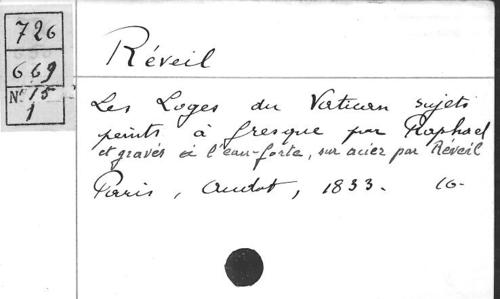 726
669
No 15
1
Réveil
Les Loges du Vatican sujets
peints à fresque par Raphael
et gravés à l'eau-forte, sur acier par Réveil
Paris, Audot, 1833. 16-